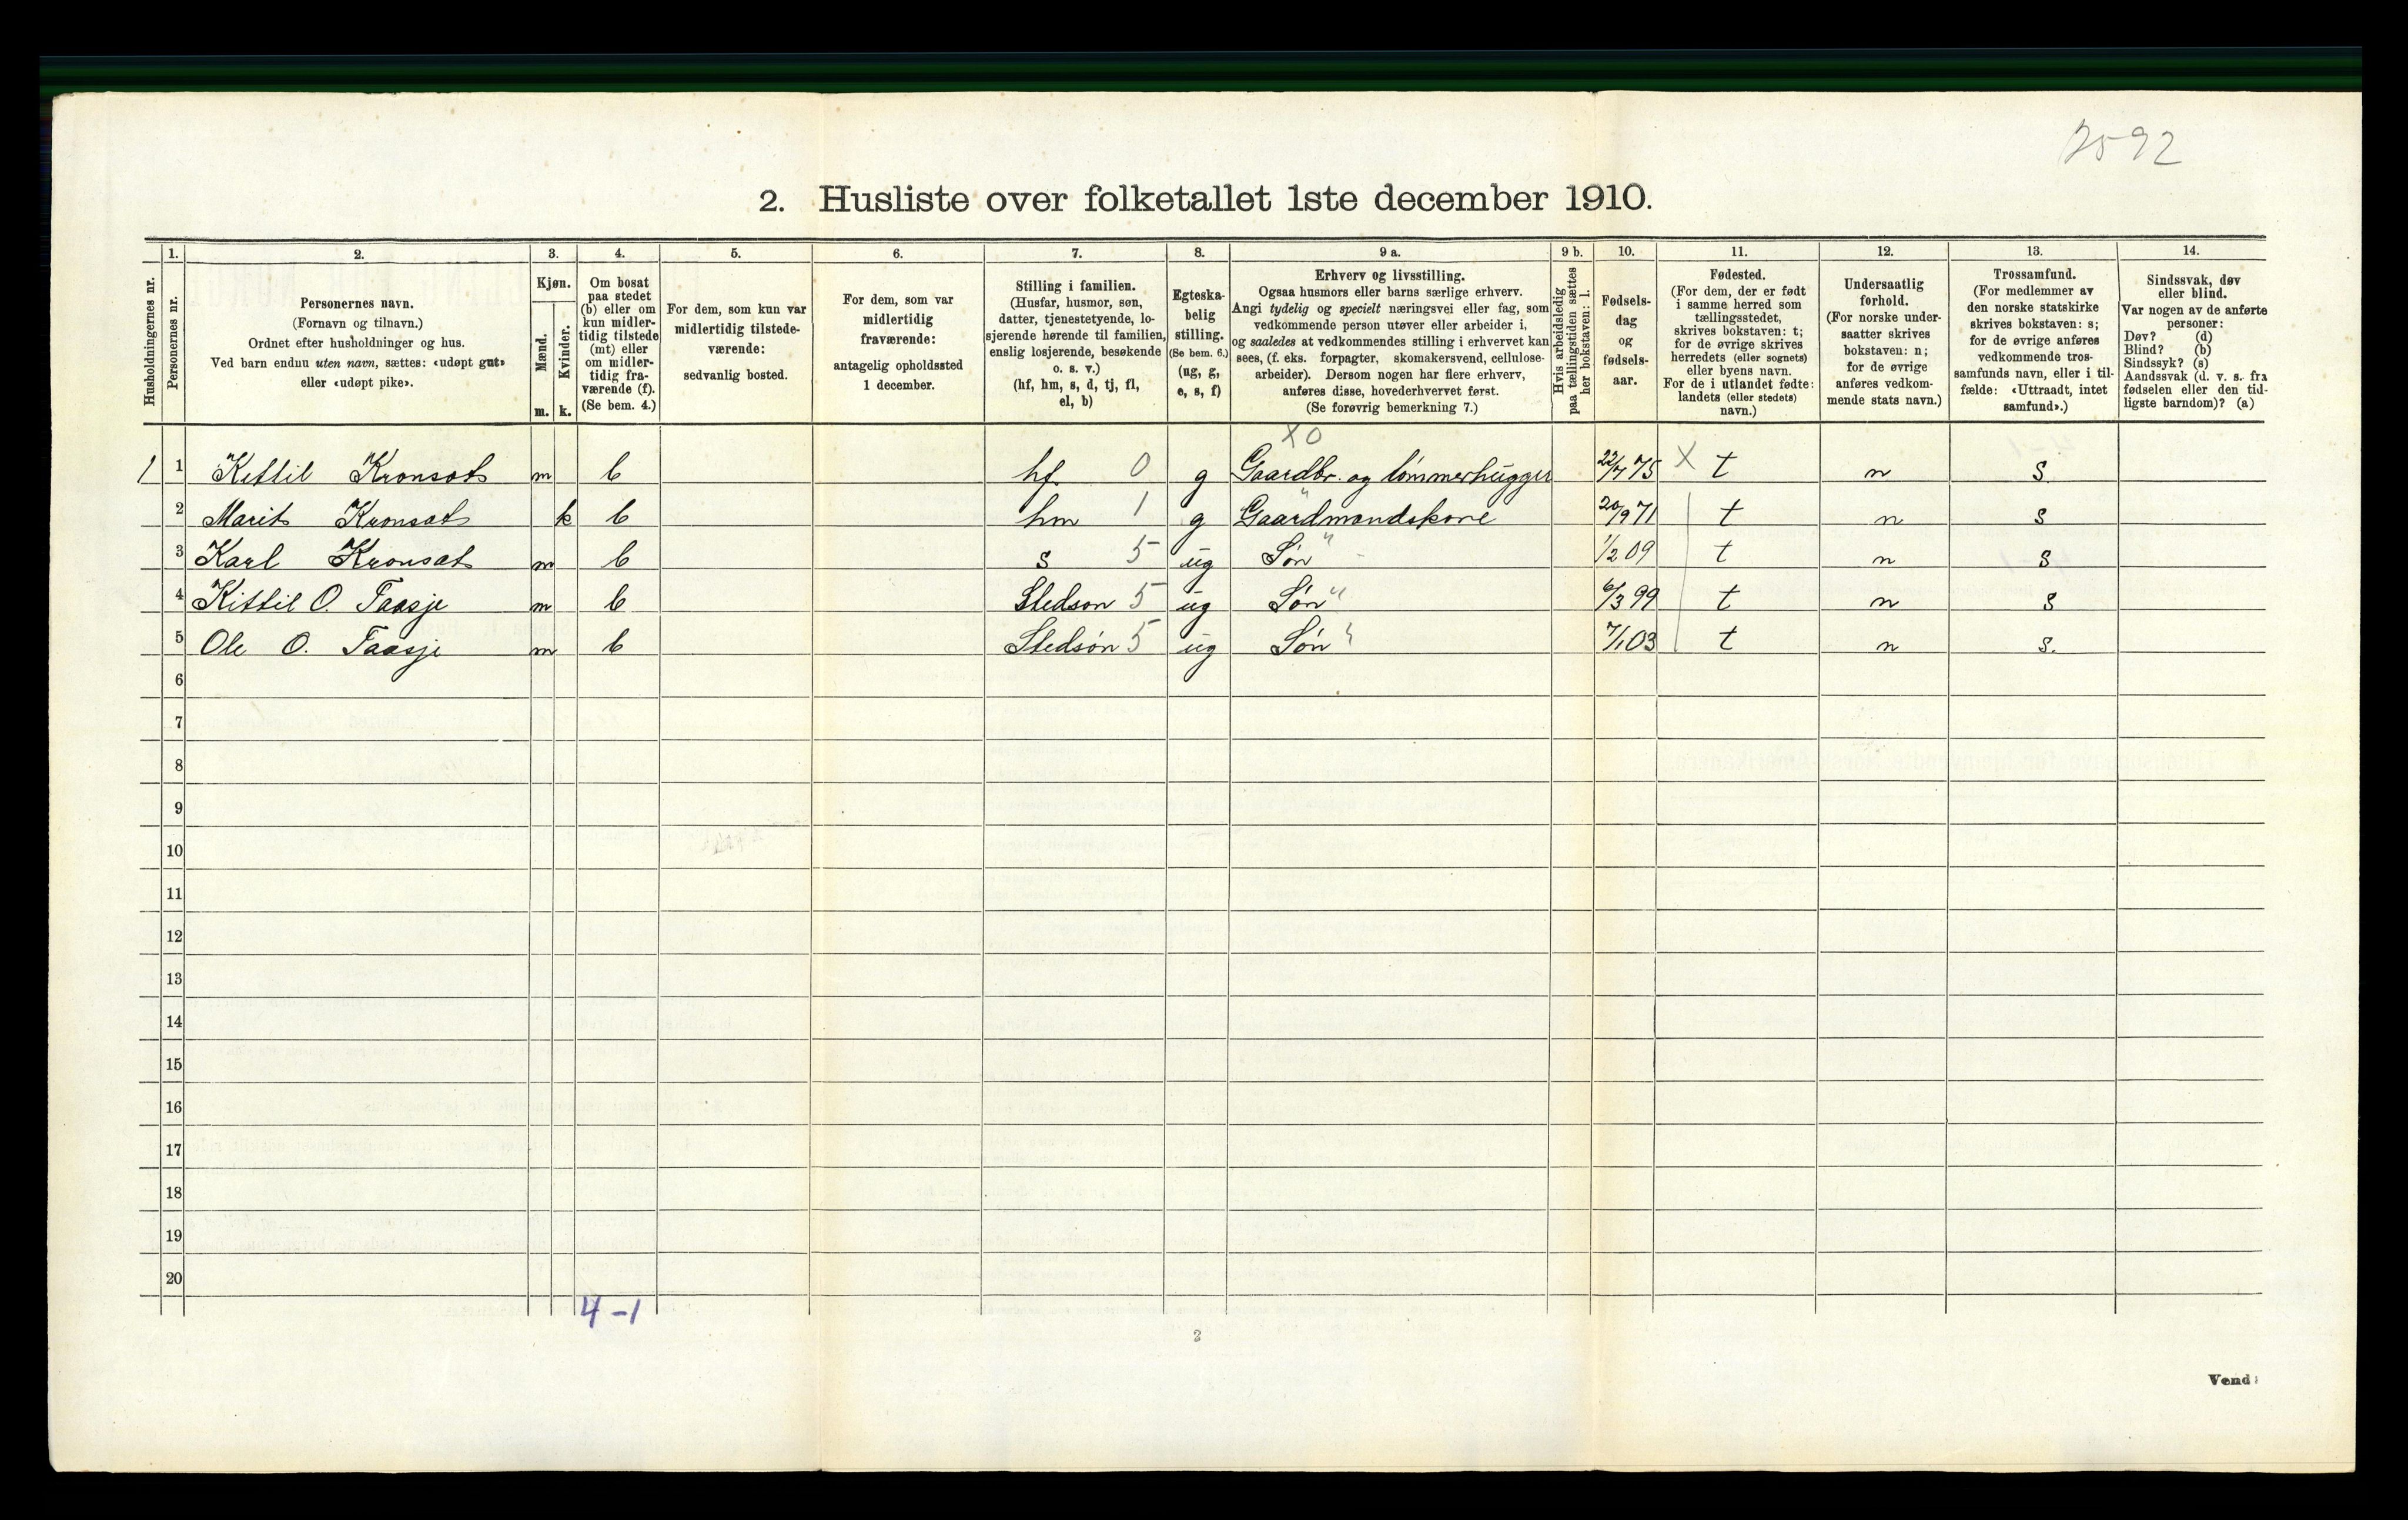 2592
2. Husliste over folketallet 1ste december 1910.
Husholdningernes nr.
1. Personernes nr.
2. Personernes navn. (Fornavn og tilnavn.) Ordnet efter husholdninger og hus. Ved barn endnu uten navn, sættes: «udøpt gut» eller «udøpt pike».
3. Kjøn. Mænd. m. Kvinder. k.
4. Om bosat paa stedet (b) eller om kun midlertidig tilstede (mt) eller om midlertidig fraværende (f). (Se bem. 4.)
5. For dem, som kun var midlertidig tilstedeværende: sedvanlig bosted.
6. For dem, som var midlertidig fraværende: antagelig opholdssted 1 december.
7. Stilling i familien. (Husfar, husmor, søn, datter, tjenestetyende, losjerende hørende til familien, enslig losjerende, besøkende o. s. v.) (hf, hm, s, d, tj, fl, el, b)
8. Egteskabelig stilling. (Se bem. 6.) (ug, g, e, s, f)
9 a. Erhverv og livsstilling. Ogsaa husmors eller barns særlige erhverv. Angi tydelig og specielt næringsvei eller fag, som vedkommende person utøver eller arbeider i, og saaledes at vedkommendes stilling i erhvervet kan sees, (f. eks. forpagter, skomakersvend, cellulosearbeider). Dersom nogen har flere erhverv, anføres disse, hovederhvervet først. (Se forøvrig bemerkning 7.)
9 b. Hvis arbeidsledig paa tællingstiden sættes her bokstaven: l.
10. Fødselsdag og fødselsaar.
11. Fødested. (For dem, der er født i samme herred som tællingsstedet, skrives bokstaven: t; for de øvrige skrives herredets (eller sognets) eller byens navn. For de i utlandet fødte: landets (eller stedets) navn.)
12. Undersaatlig forhold. (For norske undersaatter skrives bokstaven: n; for de øvrige anføres vedkommende stats navn.)
13. Trossamfund. (For medlemmer av den norske statskirke skrives bokstaven: s; for de øvrige anføres vedkommende trossamfunds navn, eller i tilfælde: «Uttraadt, intet samfund».)
14. Sindssvak, døv eller blind. Var nogen av de anførte personer: Døv? (d) Blind? (b) Sindssyk? (s) Aandssvak (d. v. s. fra fødselen eller den tidligste barndom)? (a)
X 0
1 1 Kittil Kronsøt m b hf 0 g Gaardbr. og tømmerhugger 22/7 75 X t n s
2 Marit Kronsøt k b hm 1 g Gaardmandskone 20/9 71 t n s
3 Karl Kronsøt m b s 5 ug Søn " 1/2 09 t n s
4 Kittil O. Taasje m b Stedson 5 ug Søn " 6/3 99 t n s
5 Ole O. Taasje m b Stedsøn 5 ug Søn " 7/1 03 t n s.
6
7
8
9
10
11
12
13
14
15
16
17
18
19
20
4-1
2
Vend!